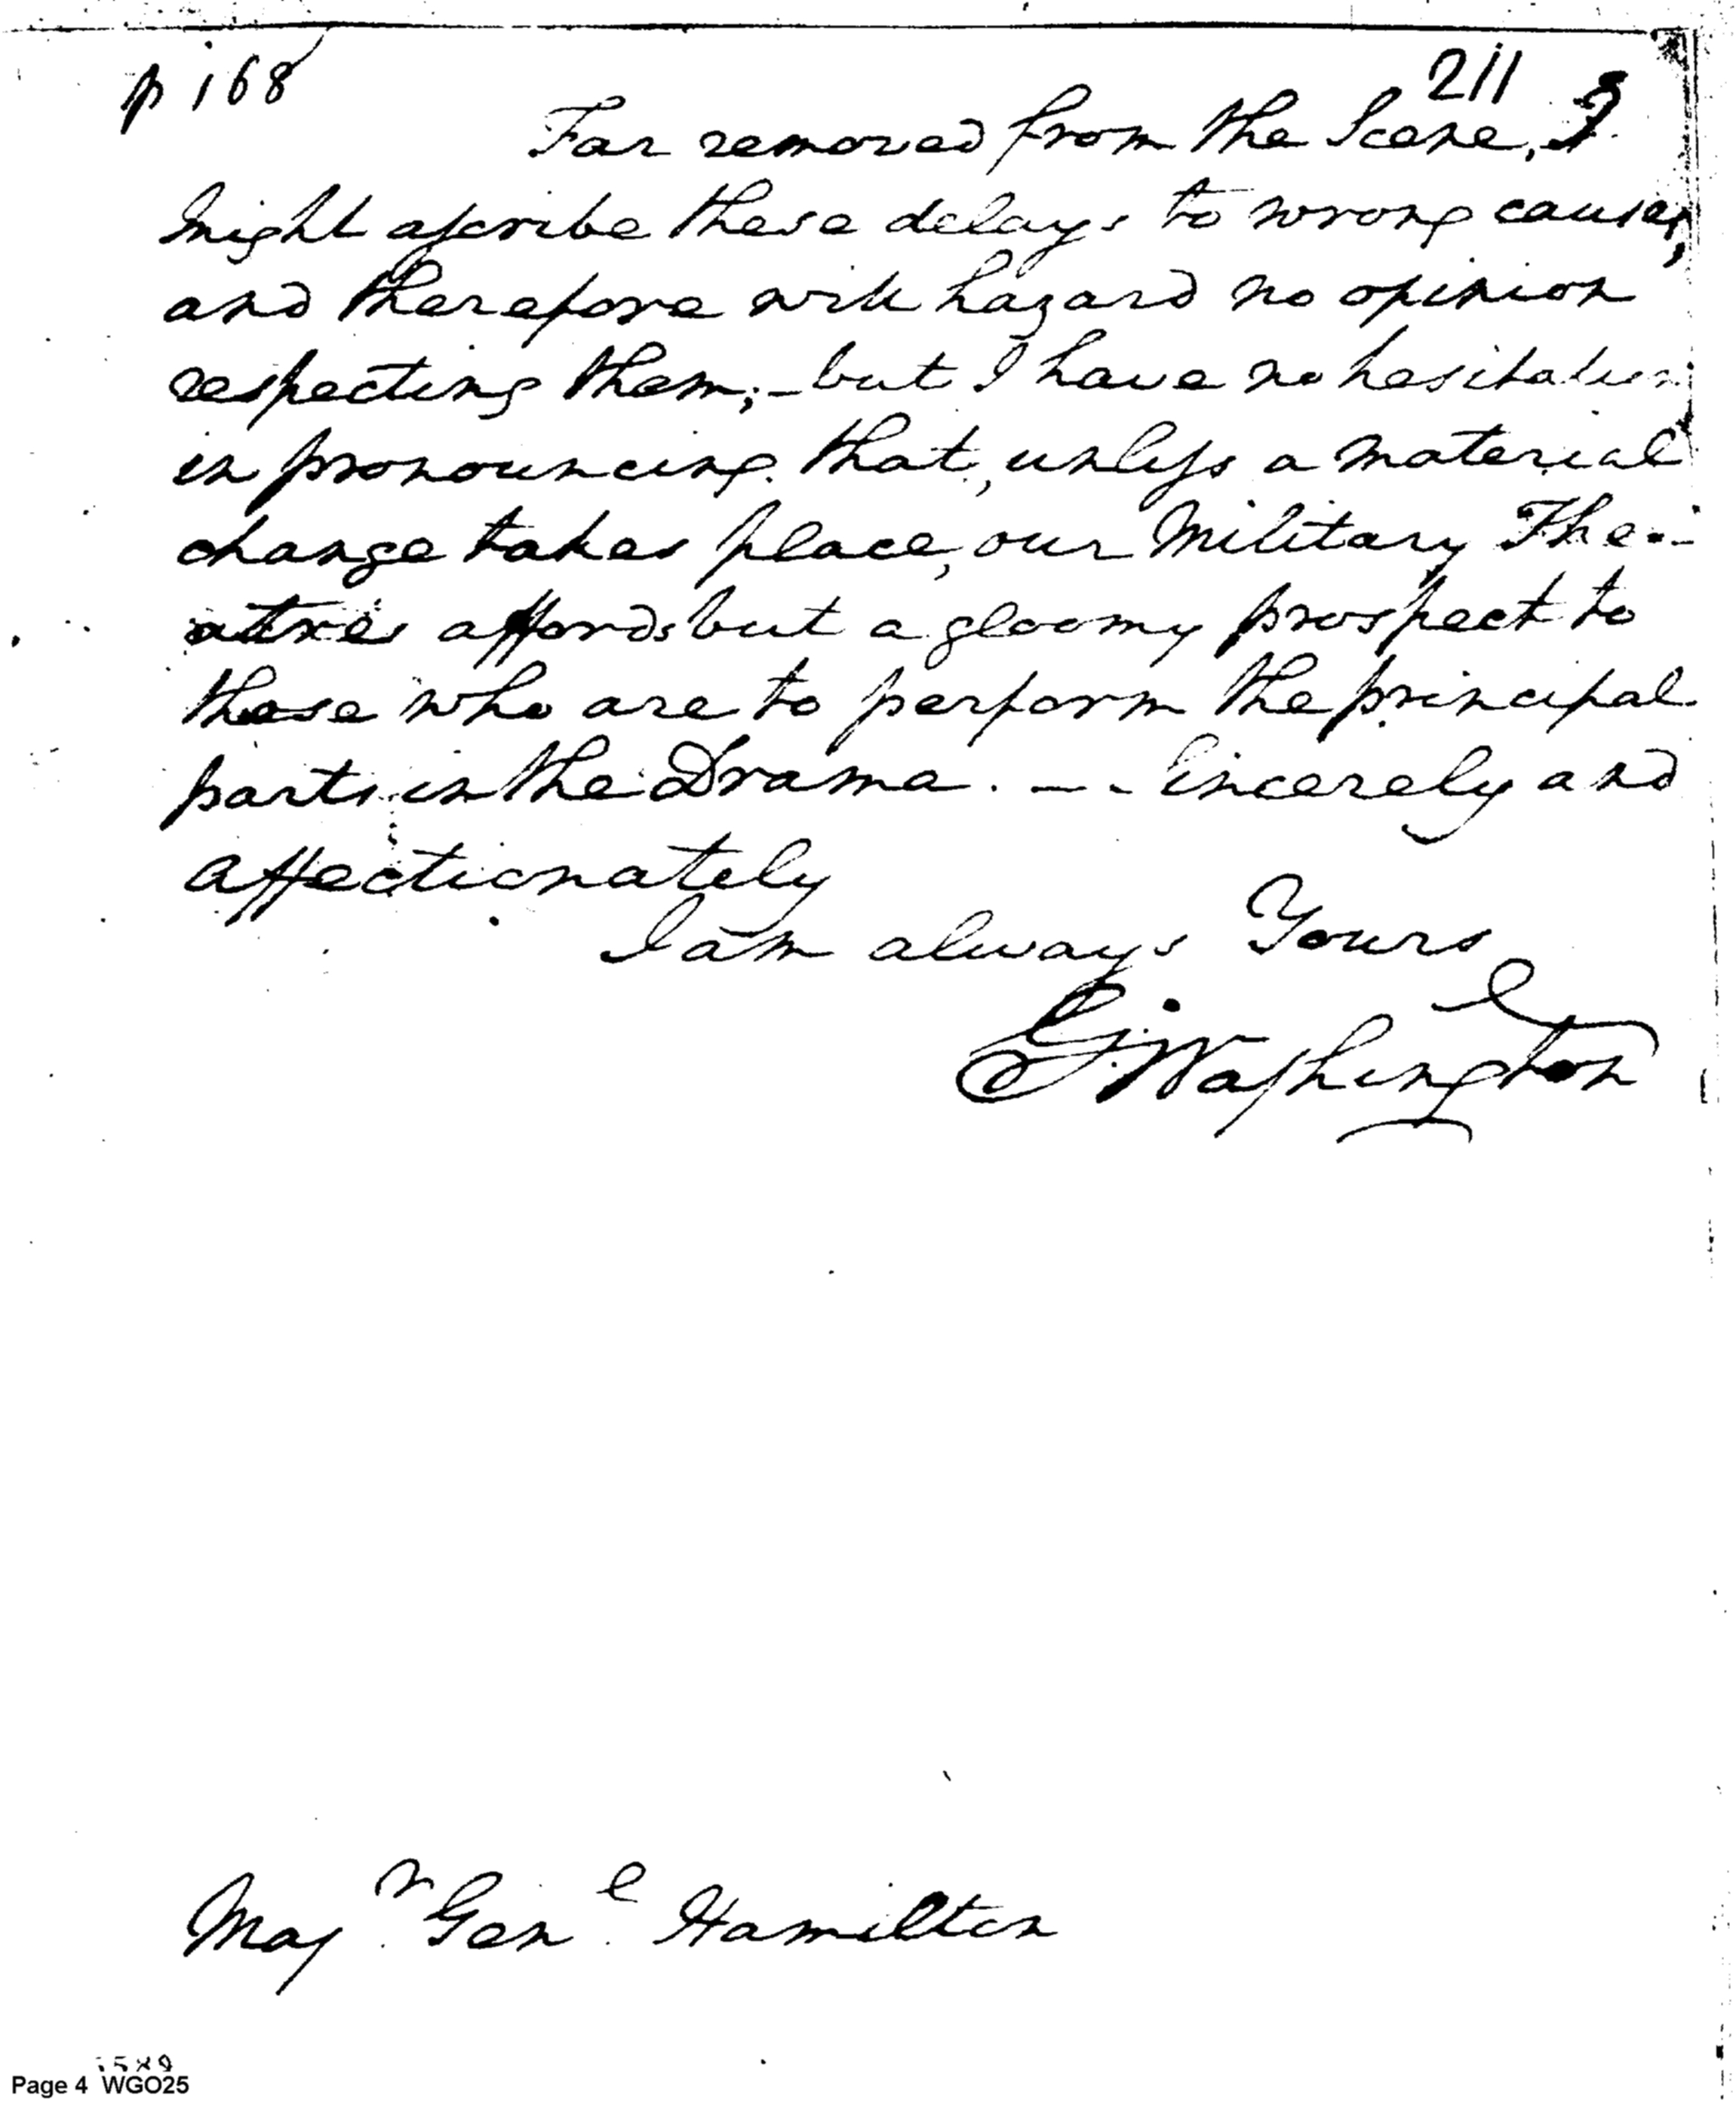 p 168
211
Far removed from the Scene, I
might ascribe these delays to wrong causes,
and therefore will hazard no opinion
respecting them;–but I have no hesitation
in pronouncing that, unless a material
change takes place, our Military The-
atre affords but a gloomy prospect to
those who are to perform the principal
parts in the Drama. – – Sincerely and
affectionately
I am always Yours
G. Washington
Majr. Genl. Hamilton
Page 4 WGO25